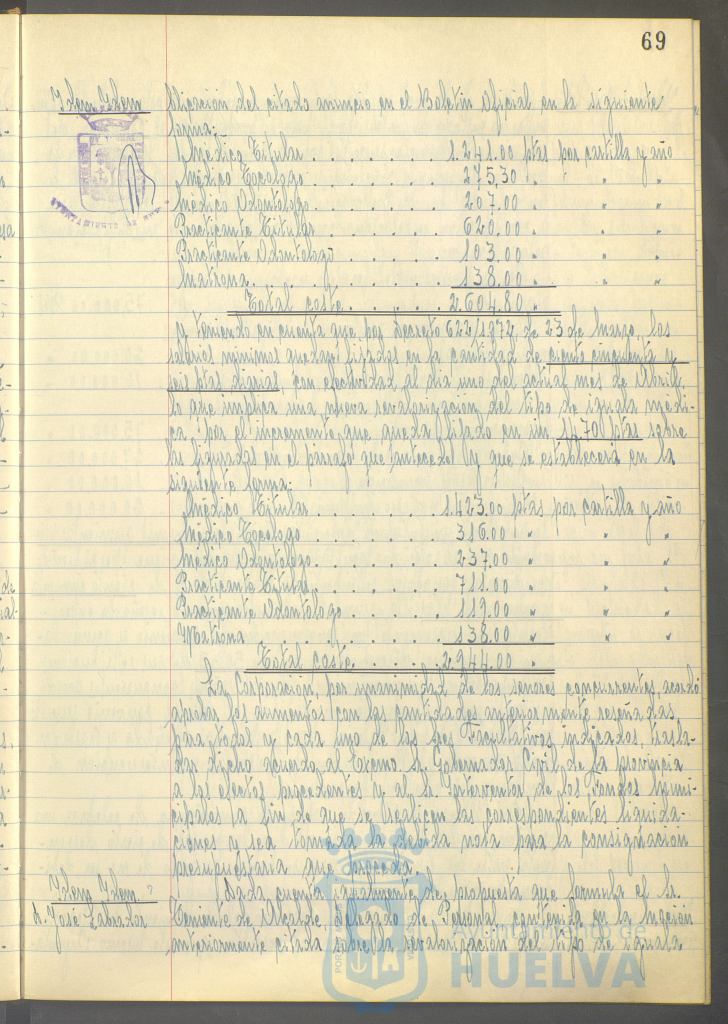 69
Idem Idem
blicación del citado anuncio en el Boletin Oficial en la siguiente
forma:
Médico Titular . . . . . . . 1.241.00 ptas por cartilla y año
Médico Tocologo . . . . . . . 275,30 " " "
Médico Odontólogo . . . . . . . 207,00 " " "
Practicante Titular . . . . . . . 620.00 " " "
Practicante Odontologo . . . . . . 103.00 " " "
Matrona . . . . . . . 138.00 " " "
Total coste . . . . . 2.604.80 "
Y teniendo en cuenta que por Decreto 622/1972 de 23 de Marzo, los
salarios minimos quedan fijados en la cantidad de ciento cincuenta y
seis ptas diarias, con efectividad al dia uno del actual mes de Abril,
lo que implica una nueva revalorización del tipo de iguala medi-
ca por el incremento que queda fijado en un 14,70 ptas sobre
las figuradas en el parrafo que antecede y que se establecerá en la
siguiente forma:
Médico Titular . . . . . . . 1.423.00 ptas por cartilla y año
Médico Tocologo . . . . . . . 316.00 " " "
Médico Odontologo . . . . . . . 237.00 " " "
Practicante Titular . . . . . . . 711.00 " " "
Practicante Odontólogo . . . . . . 119.00 " " "
Matrona . . . . . . . 138.00 " " "
Total coste . . . . . 2.944.00 "
La Corporación, por unanimidad de los señores concurrentes, acordó
aprobar los aumentos con las cantidades anteriormente reseñadas
para todos y cada uno de los Facultativos indicados, trasla-
dar dicho acuerdo al Excmo. Sr. Gobernador Civil de la provincia
a los efectos procedentes y al Sr. Interventor de los Fondos Muni-
cipales a fin de que se realicen las correspondientes liquida-
ciones y sea tomada la debida nota para la consignación
presupuestaria que proceda.
Idem Idem
D. José Labrador
Dada cuenta igualmente de propuesta que formula el Sr.
Teniente de Alcalde, Delegado de Personal, contenida en la Moción
anteriormente citada sobre la revalorización del tipo de iguala
Ayuntamiento de
HUELVA